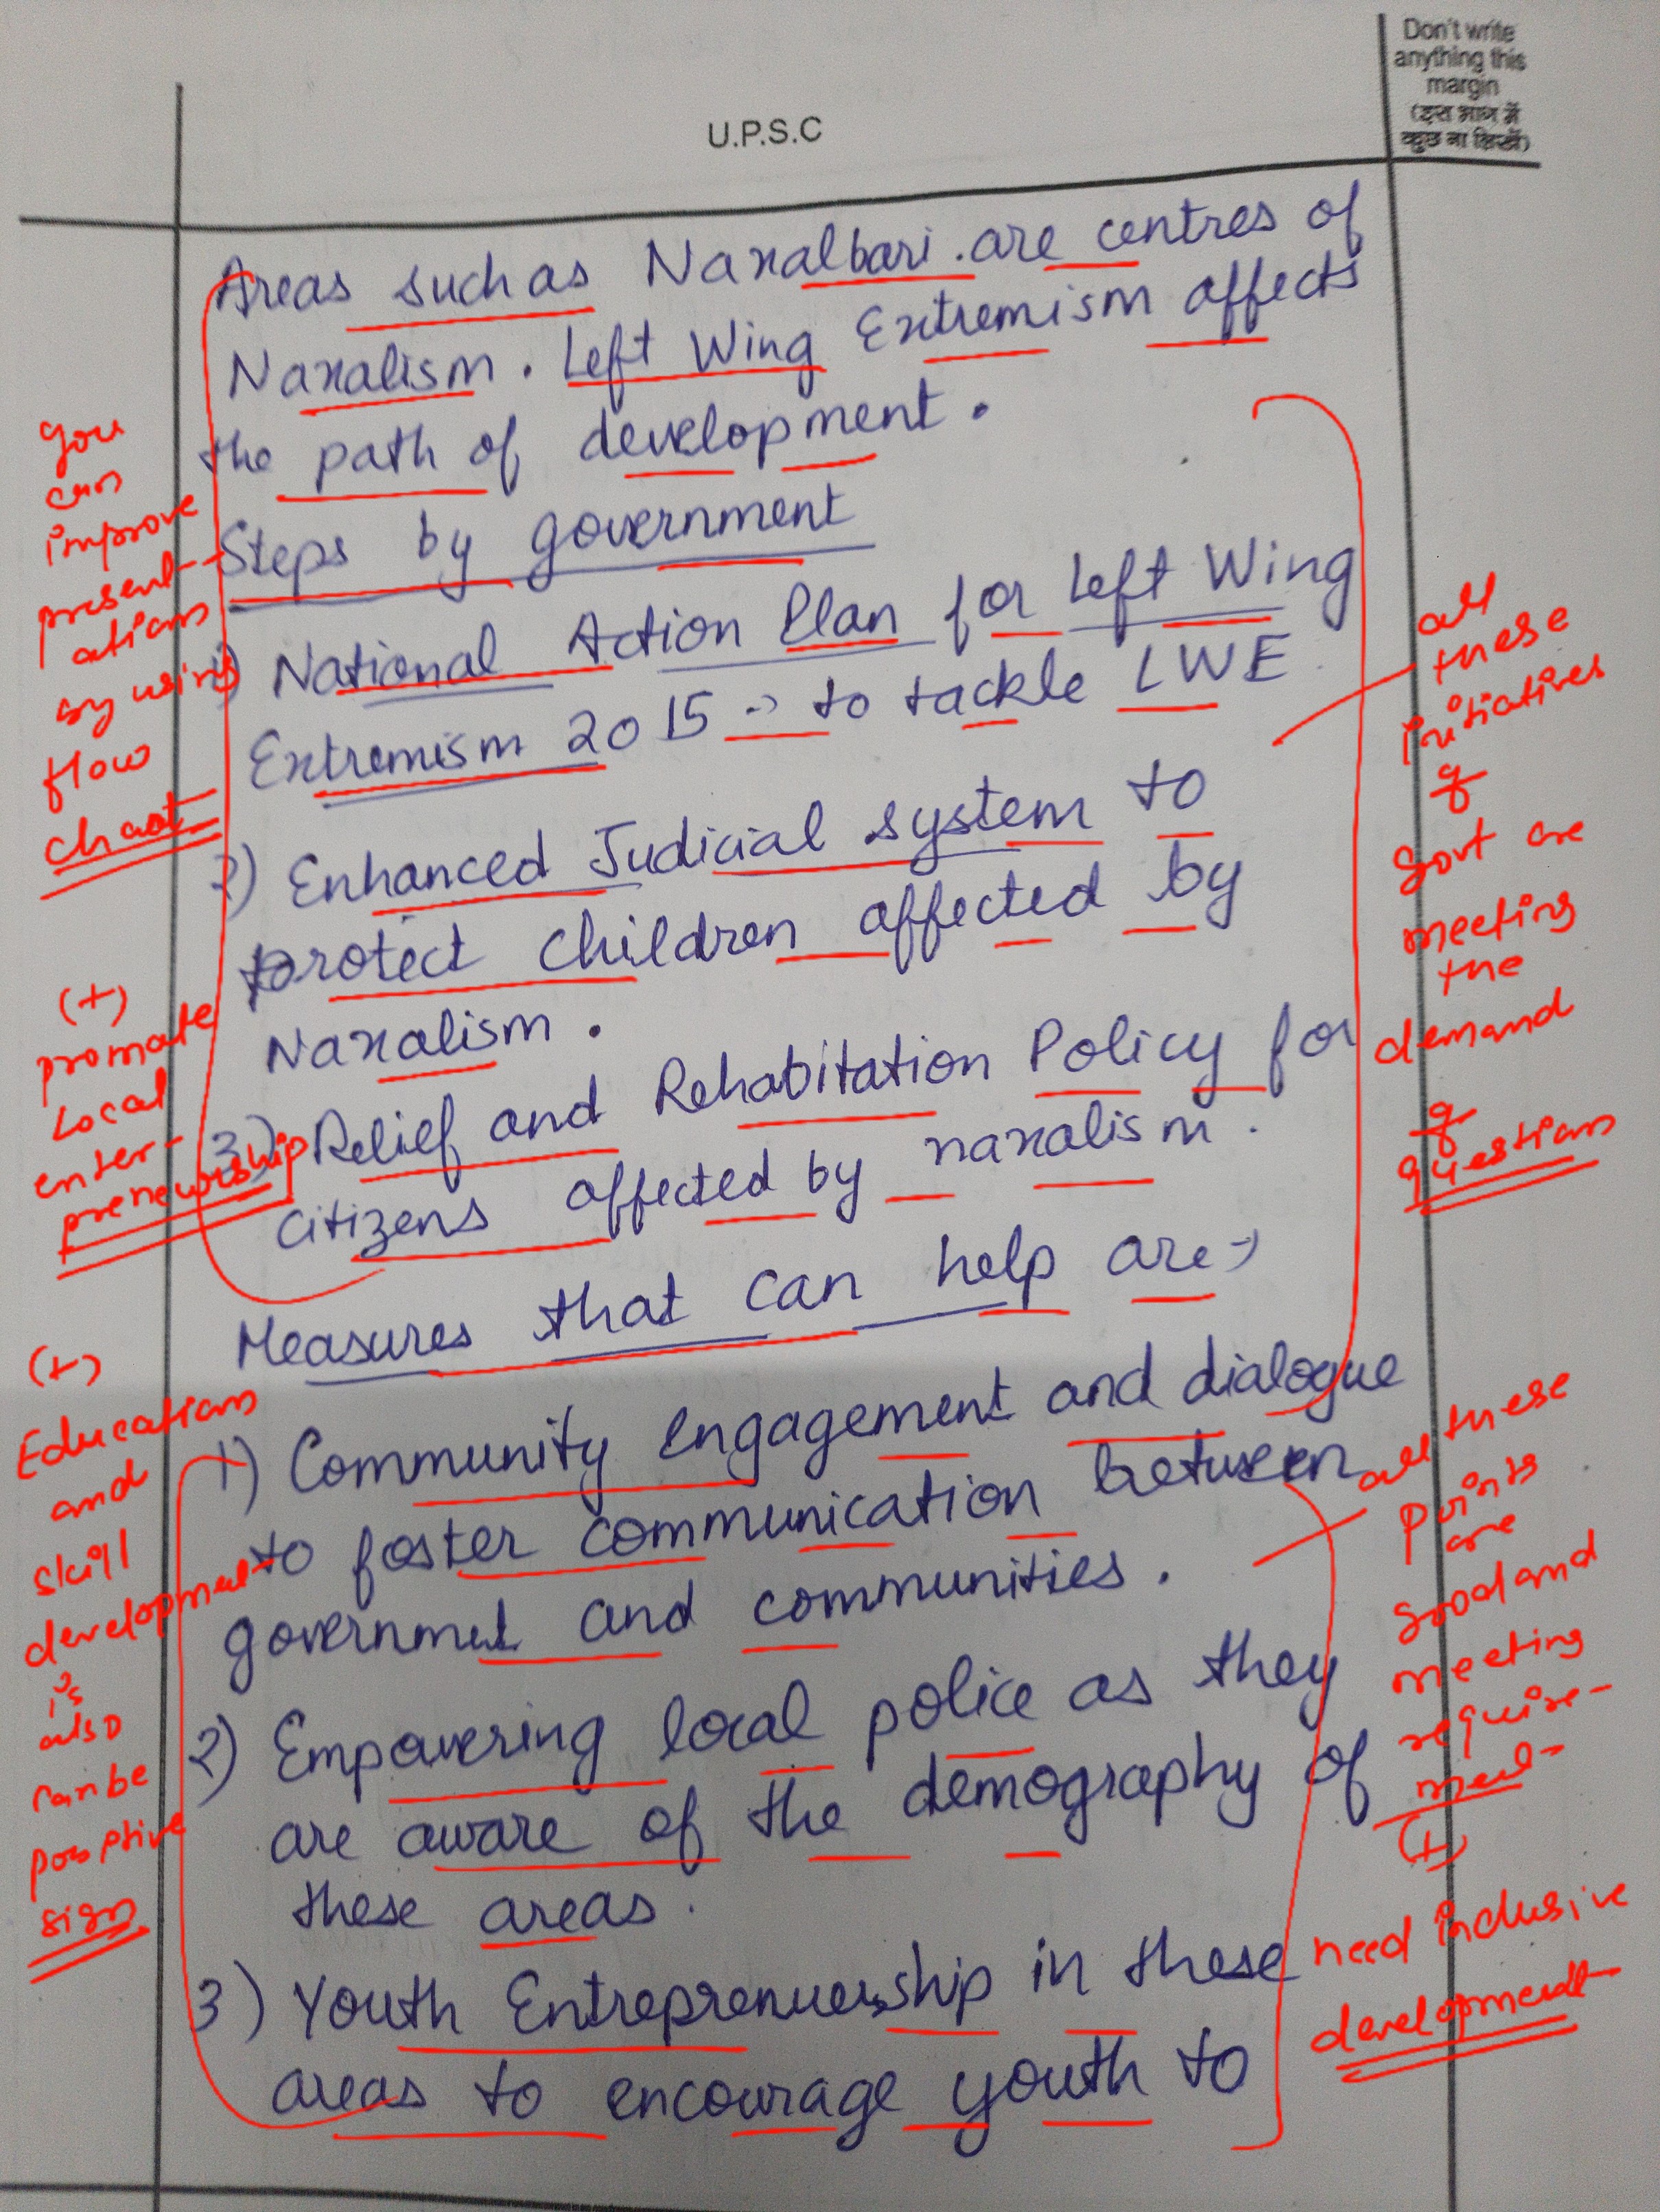 Don't write
anything this
margin
(इस भाग में
कुछ ना लिखें)
U.P.S.C
Areas such as Naxalbari are centres of
Naxalism. Left Wing Extremism affects
the path of development.
Steps by government
1) National Action Plan for Left Wing
Extremism 2015 -> to tackle LWE
2) Enhanced Judicial system to
protect children affected by
Naxalism.
3) Relief and Rehabitation Policy for
citizens affected by naxalism.
Measures that can help are ->
1) Community engagement and dialogue
to foster communication between
government and communities.
2) Empowering local police as they
are aware of the demography of
these areas.
3) Youth Entreprenuership in these
areas to encourage youth to
you
can
improve
present-
ations
by using
flow
chart
(+)
promote
Local
enter-
preneurship
(+)
Education
and
skill
development
is
also
can be
positive
sign
all
these
initiatives
of
Govt are
meeting
the
demand
of
question
all these
points
are
good and
meeting
require-
ment
(+)
need inclusive
development